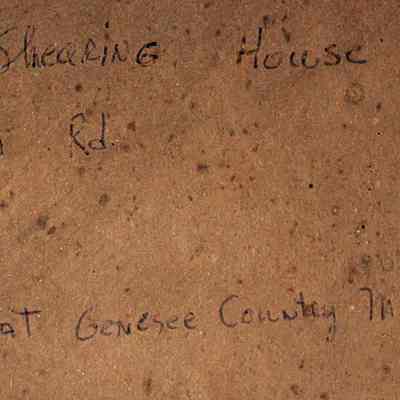 Shearing House
Rd.
at Genesee Country M